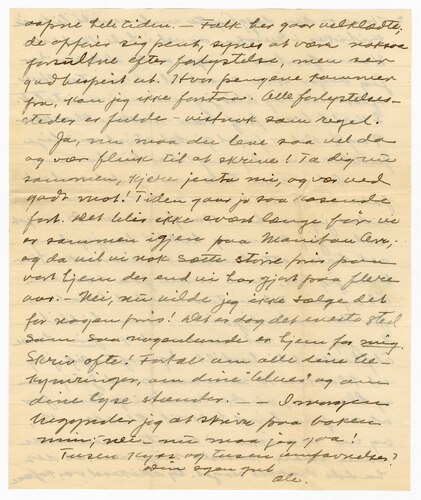 aapne hele tiden. — Folk her gaar velklædte,
de opfører sig pent, synes at være noksaa
forsultne efter forlystelse, men ser
godbespist ut. Hvor pengene kommer
fra, kan jeg ikke forstaa. Alle forlystelses-
steder er fulde — vistnok som regel.
Ja, nu maa du leve saa vel da
og vær flink til at skrive! Ta dig nu
sammen, kjere jenta mi, og vær ved
godt mot! Tiden gaar jo saa rasende
fort. Det blir ikke svært længe før vi
er sammen igjen paa Manitou Ave.,
og da vil vi nok sætte større pris paa
vort hjem der end vi har gjort paa flere
aar. — Nei, nu vilde jeg ikke sælge det
for nogen pris! Det er dog det eneste sted
som saa nogenlunde er hjem for mig.
Skriv ofte! Fortæl om alle dine be-
kymringer, om dine "blues" og om
dine lyse stunder. — — I morgen
begynder jeg at skrive paa boken
min; nei — nu maa jeg gaa!
Tusen kyss og tusen omfavnelser!
Din egen gut
Ole.